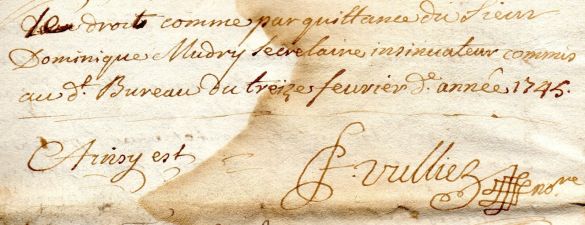 les droits comme par quittance du Sieur
Dominique Mudry secretaire insinuateur commis
au dt. Bureau du treize fevrier de. année 1745.
Ainsy est
vulliez nore